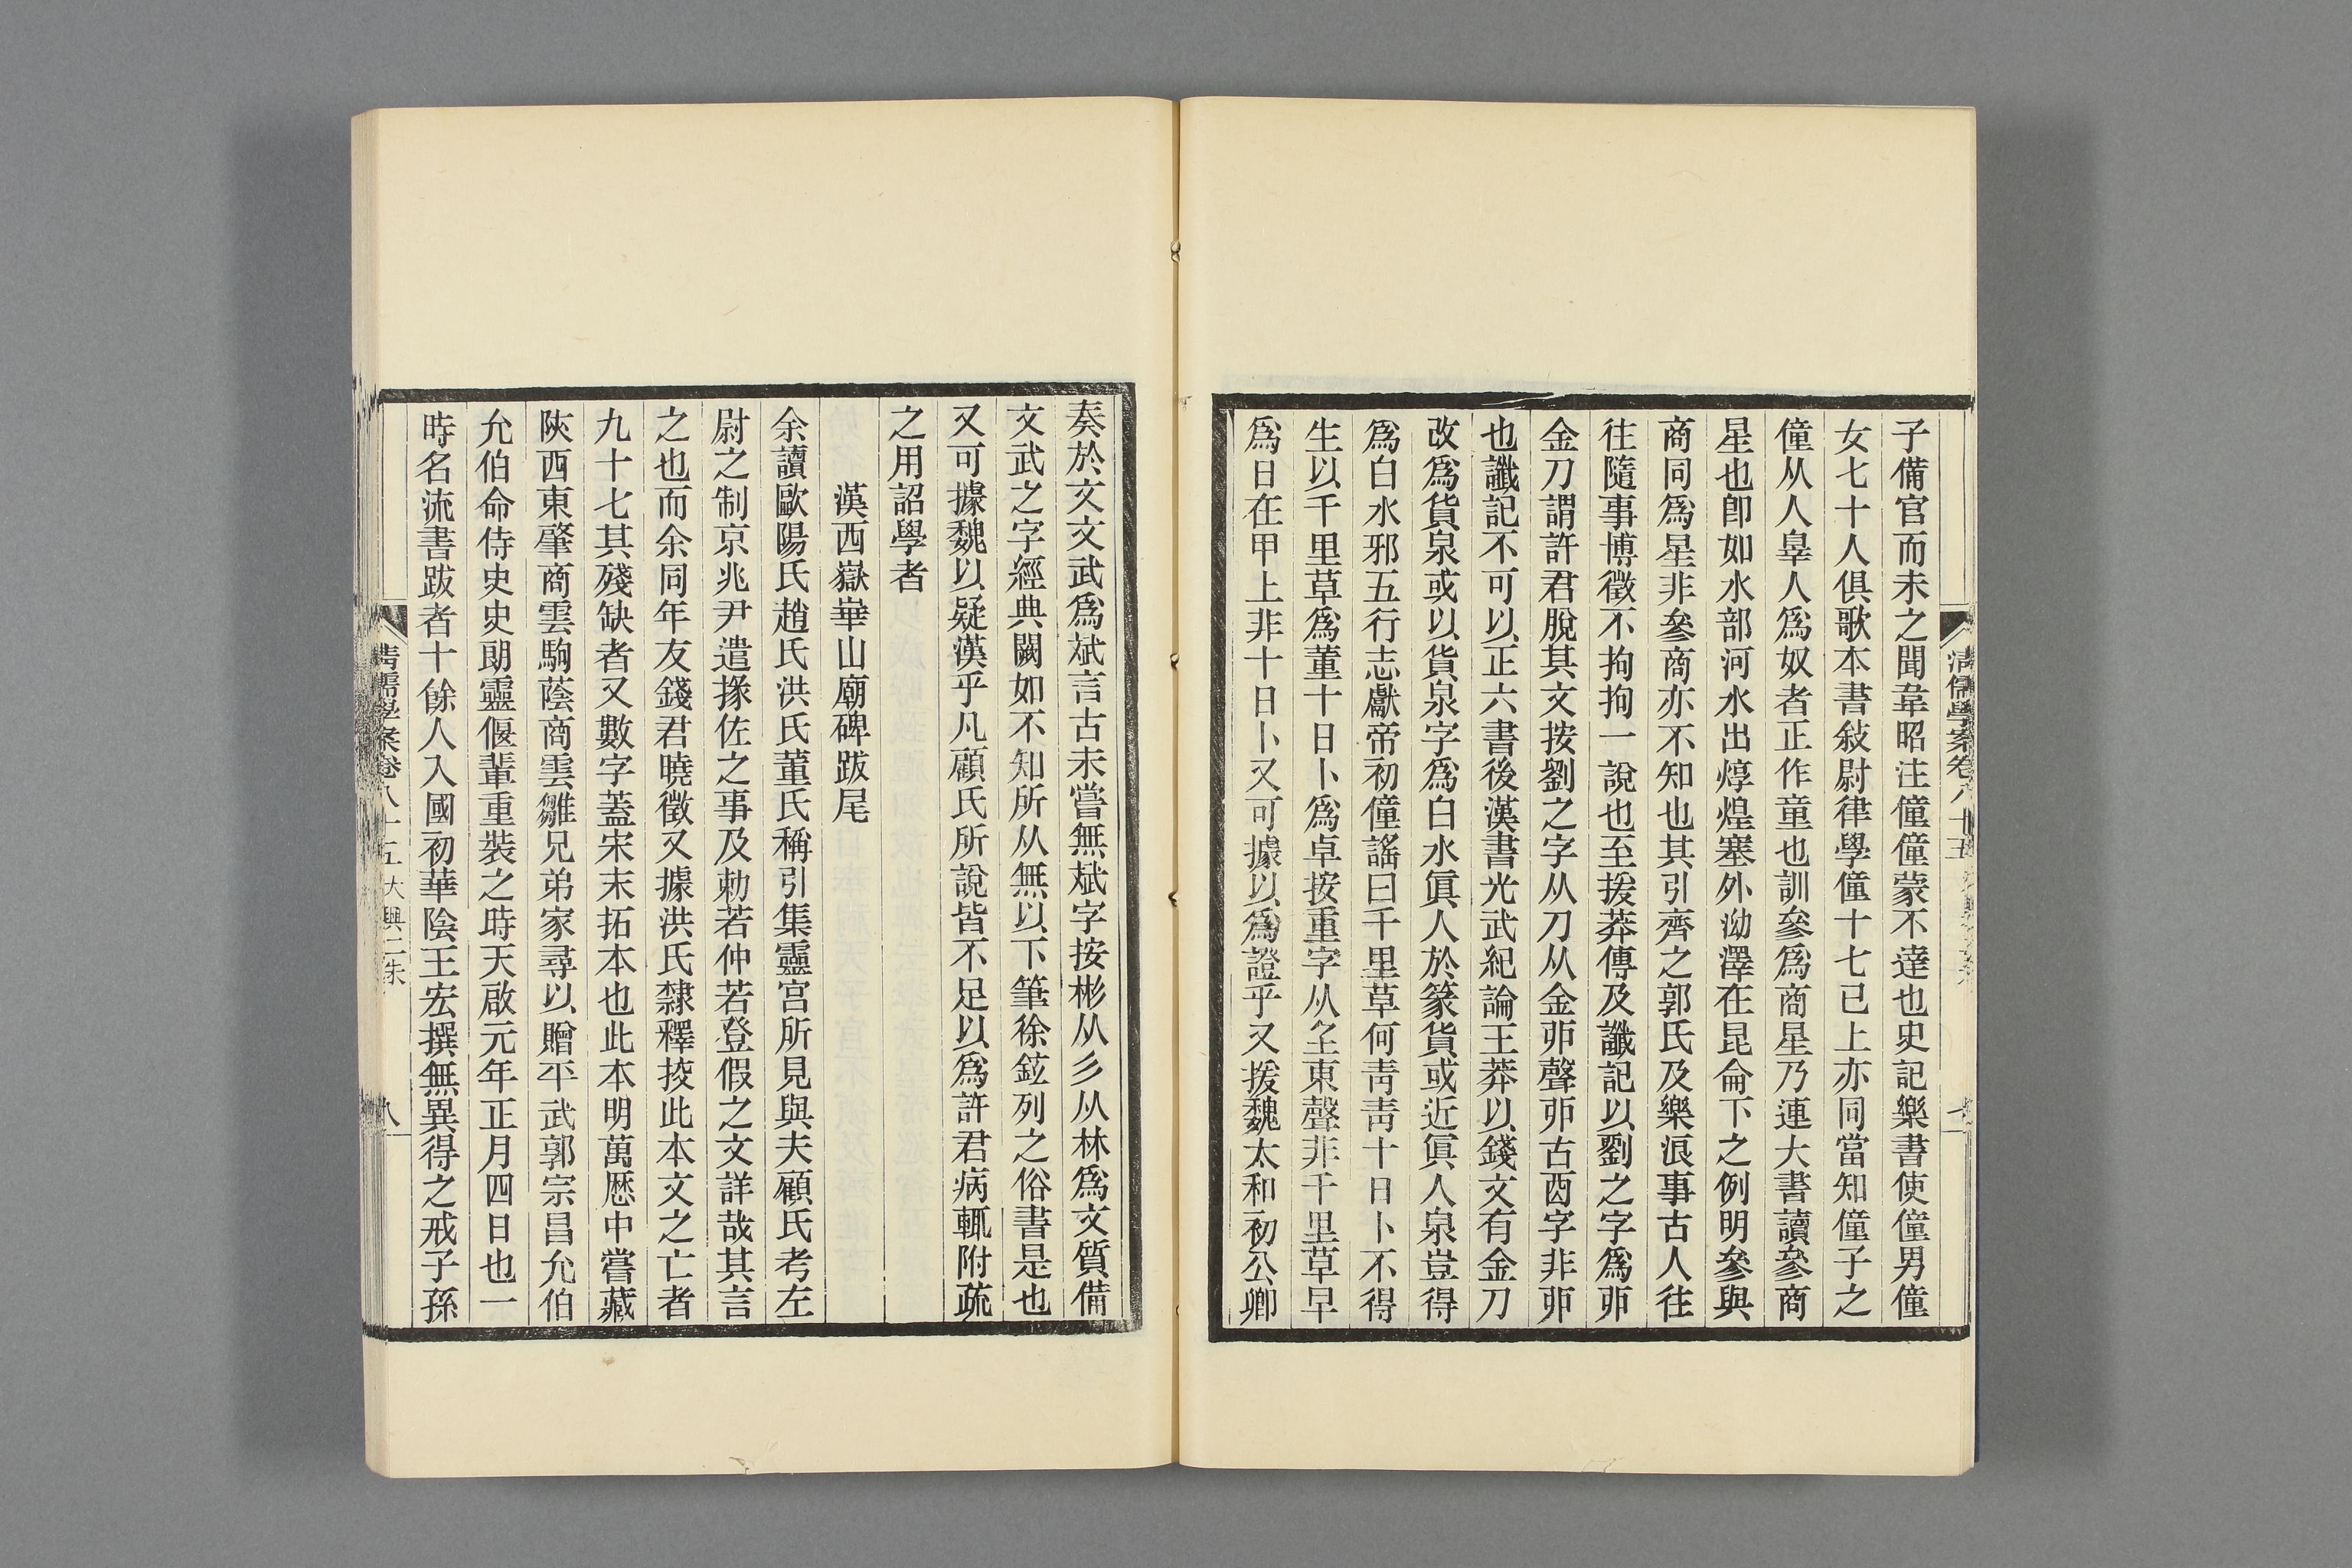 子備官而未之聞韋昭注僮僮蒙不達也史記樂書使僮男僮
女七十人俱歌本書敍尉律學僮十七已上亦同當知僮子之
僮从人辠人爲奴者正作童也訓參爲商星乃連大書讀參商
星也卽如水部河水出焞煌塞外泑澤在昆侖下之例明參與
商同爲星非參商亦不知也其引齊之郭氏及樂浪事古人往
往隨事博徵不拘拘一說也至援莽傳及讖記以劉之字爲丣
金刀謂許君脫其文按劉之字从刀从金丣聲丣古酉字非丣
也讖記不可以正六書後漢書光武紀論王莽以錢文有金刀
改爲貨泉或以貨泉字爲白水眞人於篆貨或近眞人泉豈得
爲白水邪五行志獻帝初僮謠曰千里草何靑靑十日卜不得
生以千里草爲董十日卜爲卓按重字从𡈼東聲非千里草早
爲日在甲上非十日卜又可據以爲證乎又援魏太和初公卿
奏於文文武爲斌言古未嘗無斌字按彬从彡从林爲文質備
文武之字經典闕如不知所从無以下筆徐鉉列之俗書是也
又可據魏以疑漢乎凡顧氏所說皆不足以爲許君病輒附疏
之用詔學者
漢西嶽崋山廟碑跋尾
余讀歐陽氏趙氏洪氏董氏稱引集靈宮所見與夫顧氏考左
尉之制京兆尹遣掾佐之事及勅若仲若登假之文詳哉其言
之也而余同年友錢君曉徵又據洪氏隸釋挍此本文之亡者
九十七其殘缺者又數字蓋宋末拓本也此本明萬厯中嘗藏
陝西東肇商雲駒蔭商雲雛兄弟家尋以贈平武郭宗昌允伯
允伯命侍史史明靈偃輩重裝之時天啟元年正月四日也一
時名流書跋者十餘人入國初華陰王宏撰無異得之戒子孫
清儒學案卷八十五 大興二朱
八
清儒學案卷八十五